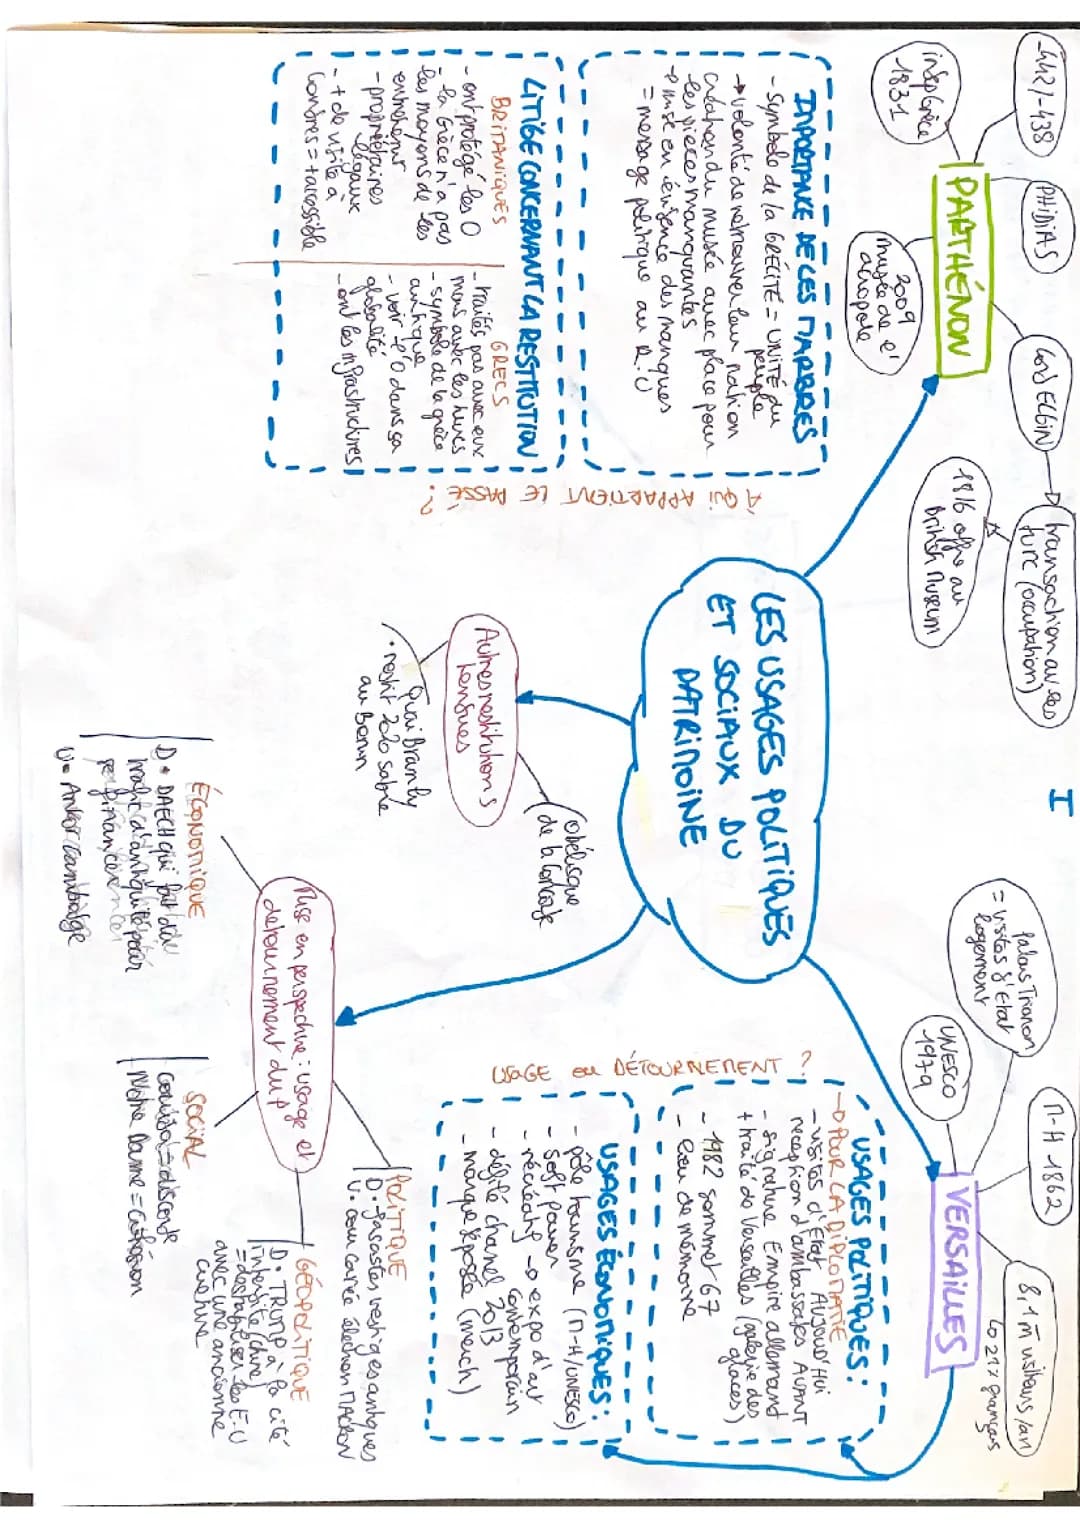 I
-442/-438
PHIDIAS
Lord ELGIN
transaction avec les
turc (occupation)
1816 offre au
British Museum
indép Grèce
1831
PARTHÉNON
2009
musée de l'
acropole
IMPORTANCE DE CES MARBRES
- Symbole de la GRÉCITÉ = UNITÉ du
peuple
→ volonté de retrouver leur nation
création du musée avec place pour
les pièces manquantes
→ mise en évidence des manques
= message politique au R.U
LITIGE CONCERNANT LA RESTITUTION
BRITANIQUES
- ont protégé les O
- la Grèce n'a pas
les moyens de les
entretenir
- propriétaires
légaux
- + de visite à
Londres = + accessible
GRECS
- traités pas avec eux
mais avec les turcs
- symbole de la grèce
antique
- voir l'O dans sa
globalité
- ont les infrastructures
À QUI APPARTIENT LE PASSÉ ?
LES USAGES POLITIQUES
ET SOCIAUX DU
PATRIMOINE
Autres restitutions
tendues
Quai Branly
• restit 2020 sabre
au Benin
obélisque
de la Concorde
palais Trianon
= visites d'Etat
logement
UNESCO
1979
M-H 1862
8,1 m visiteurs/an
↳ 21% français
VERSAILLES
USAGE ou DÉTOURNEMENT ?
USAGES POLITIQUES :
→ POUR LA DIPLOMATIE
- visites d'Etat AUJOUD'HUI
reception d'ambassades AVANT
- signature Empire allemand
+ traité de Versailles (galerie des
glaces)
- 1982 sommet G7
- lieu de mémoire
USAGES ÉCONOMIQUES :
- pôle tourisme (M-H/UNESCO)
- soft power
- récréatif → expo d'art
contemporain
- défilé chanel 2013
- marque déposée (merch)
Mise en perspective : usage et
détournement du P
POLITIQUE
D • gasastes vestiges antiques
U • cour carrée élection MACRON
GÉOPOLITIQUE
D • TRUMP à la cité
interdite (chine)
= destabiliser les E.U
avec une ancienne
culture
SOCIAL
Notre Dame = cohésion
ÉCONOMIQUE
D • DAECH qui fait du
trafic d'antiquité pour
se financer
U • Ankor cambodge